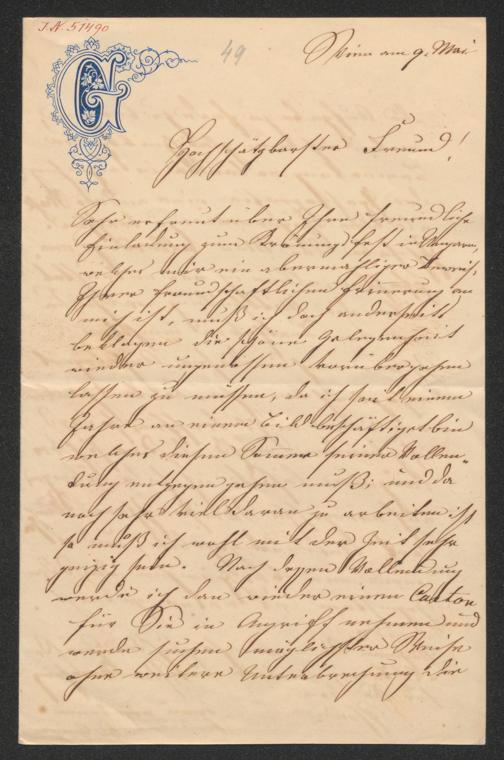 J.N. 51490
49
Wien am 9. Mai
G
Hochschätzbarster Freund!
Sehr erfreut über Ihre freundliche
Einladung zum Krönungsfest in Ungarn,
welches mir ein abermahliger Beweis,
Ihrer freundschaftlichen Erinerung an
mich ist, muß ich doch anderseits
beklagen die schöne Gelegenheit
wieder ungenossen vorübergehen
lassen zu müssen, da ich seit einem
Jahre an einem Bild beschäftiget bin
welches diesen Somer seiner Vollen-
dung entgegen gehen muß; und da
noch sehr viel daran zu arbeiten ist
so muß ich wohl mit der Zeit sehr
geizig sein. Nach dessen Vollendung
werde ich dan wieder einen Carton
für Sie in Angriff nehmen und
werde suchen möglichster Weise
ohne weitere Unterbrechung die